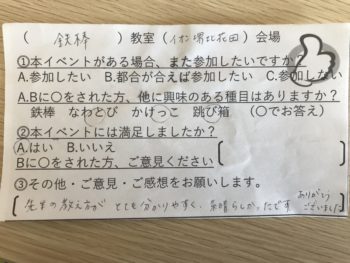 （ 鉄棒 ）教室（イオン堺北花田）会場
①本イベントがある場合、また参加したいですか？
A.参加したい B.都合が合えば参加したい C.参加しない
A.Bに〇をされた方、他に興味のある種目はありますか？
鉄棒 なわとび かけっこ 跳び箱 （〇でお答え）
②本イベントには満足しましたか？
A.はい B.いいえ
Bに〇をされた方、ご意見ください
③その他・ご意見・ご感想をお願いします。
先生の教え方が とても分かりやすく、素晴らしかったです ありがとうございました